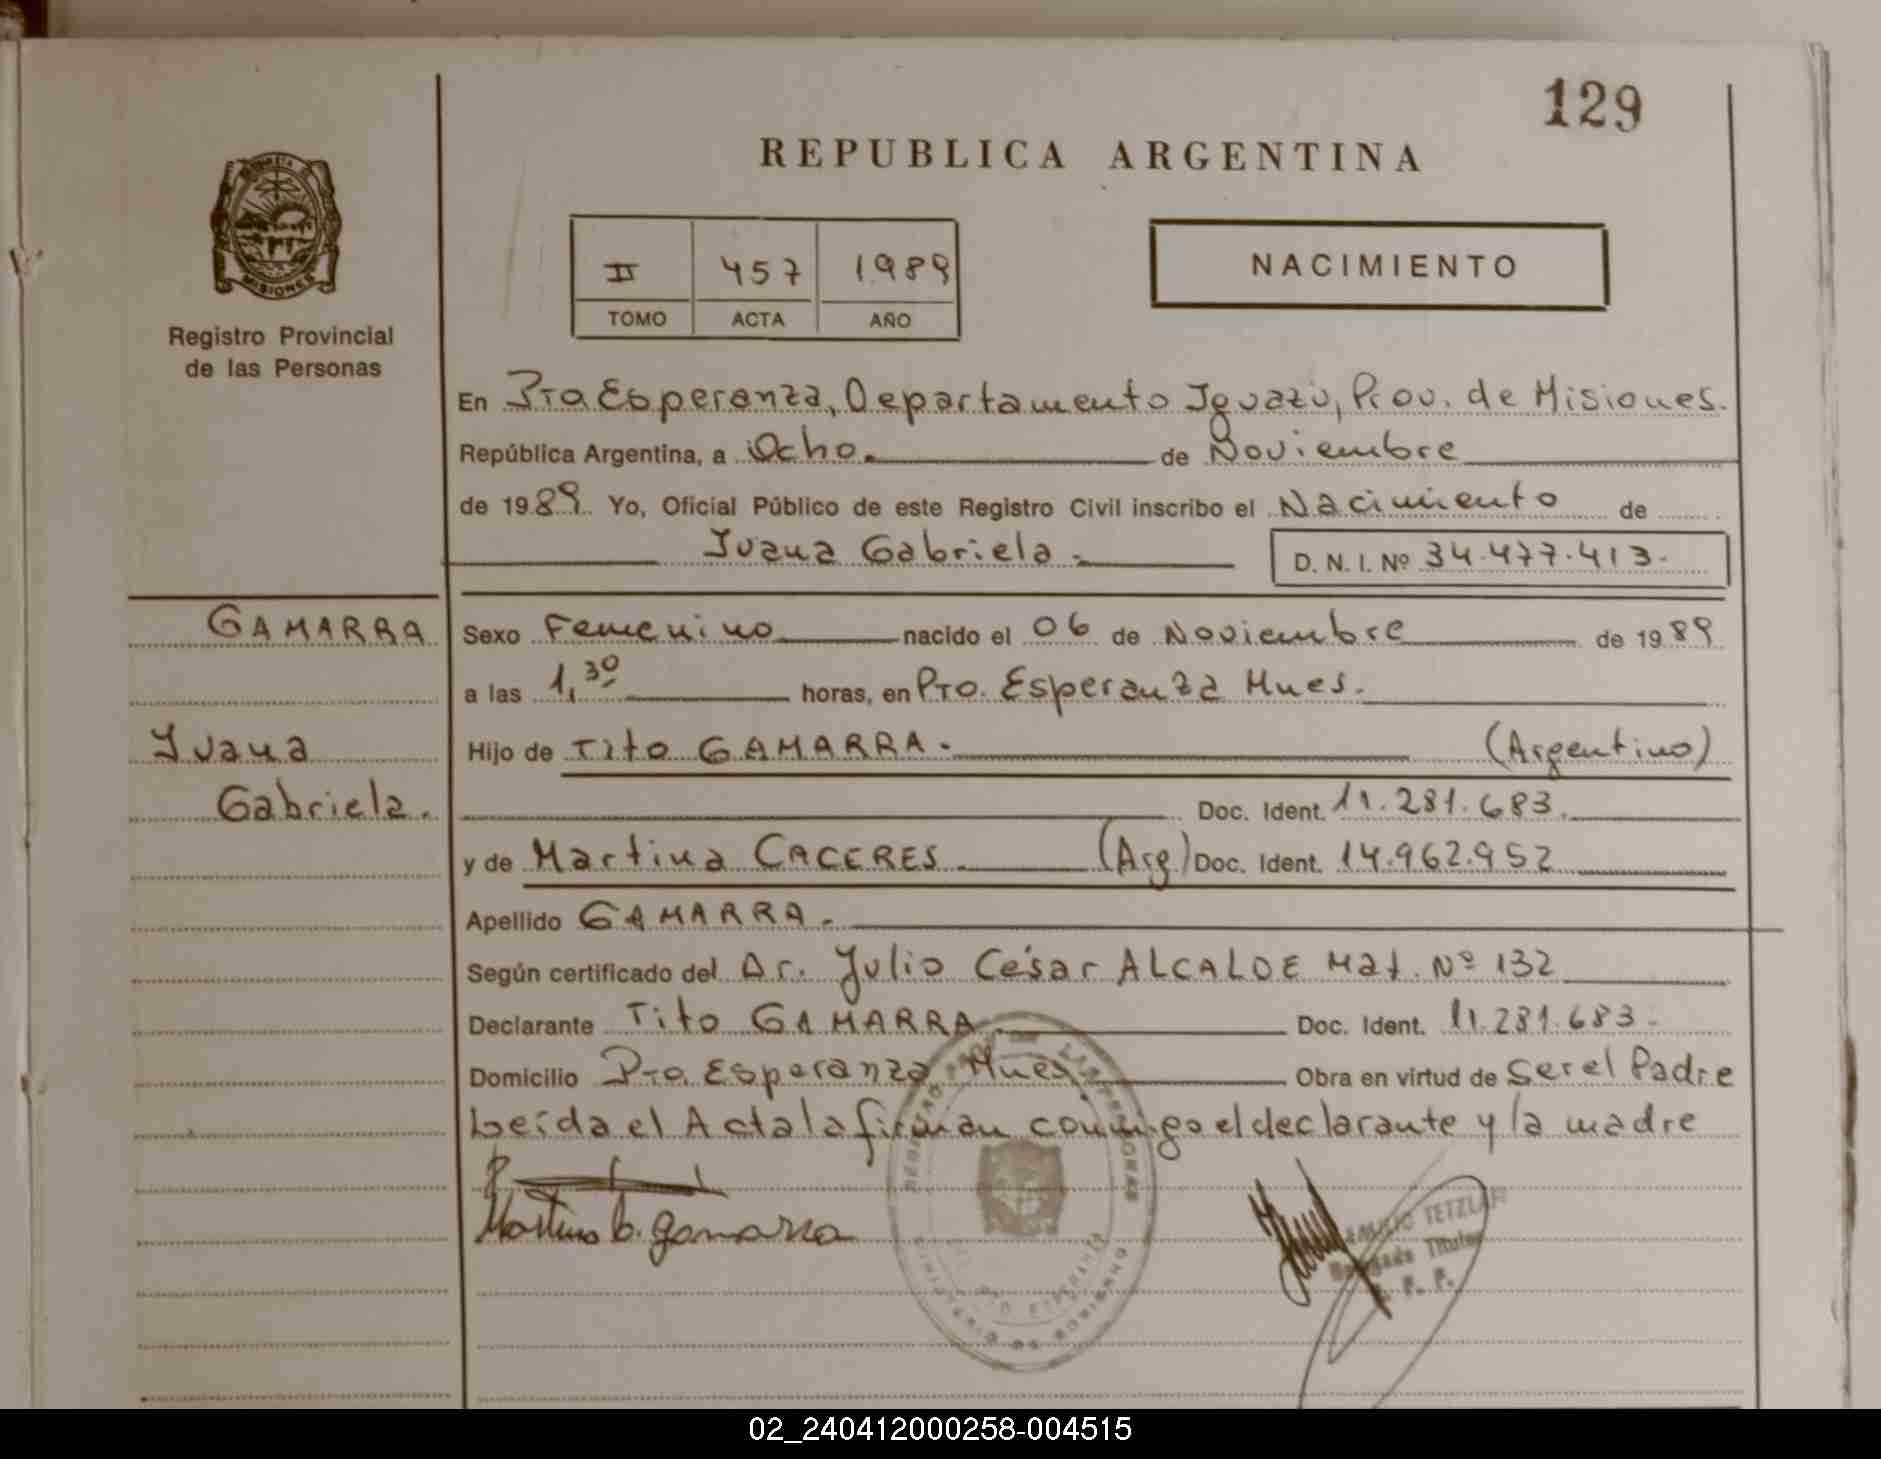 129
REPUBLICA ARGENTINA
MISIONES
Registro Provincial
de las Personas
II 457 1989
TOMO ACTA AÑO
NACIMIENTO
En Pto Esperanza, Departamento Iguazú, Prov. de Misiones.
República Argentina, a Ocho. de Noviembre
de 1989. Yo, Oficial Público de este Registro Civil inscribo el Nacimiento de
Juana Gabriela. D. N. I. Nº 34.477.413.
GAMARRA
Juana
Gabriela.
Sexo Femenino nacido el 06 de Noviembre de 1989
a las 1,30 horas, en Pto. Esperanza Mnes.
Hijo de Tito GAMARRA. (Argentino)
Doc. Ident. 11.281.683.
y de Martina CACERES. (Arg) Doc. Ident. 14.962.952
Apellido GAMARRA.
Según certificado del Dr. Julio César ALCALDE Mat. Nº 132
Declarante Tito GAMARRA. Doc. Ident. 11.281.683.
Domicilio Pto. Esperanza Mnes. Obra en virtud de Ser el Padre
Leída el Acta la firman conmigo el declarante y la madre
Martina C. Gamarra
TETZLAF
Titular
R. P.
REGISTRO DE LAS PERSONAS
PTO ESPERANZA
02_240412000258-004515